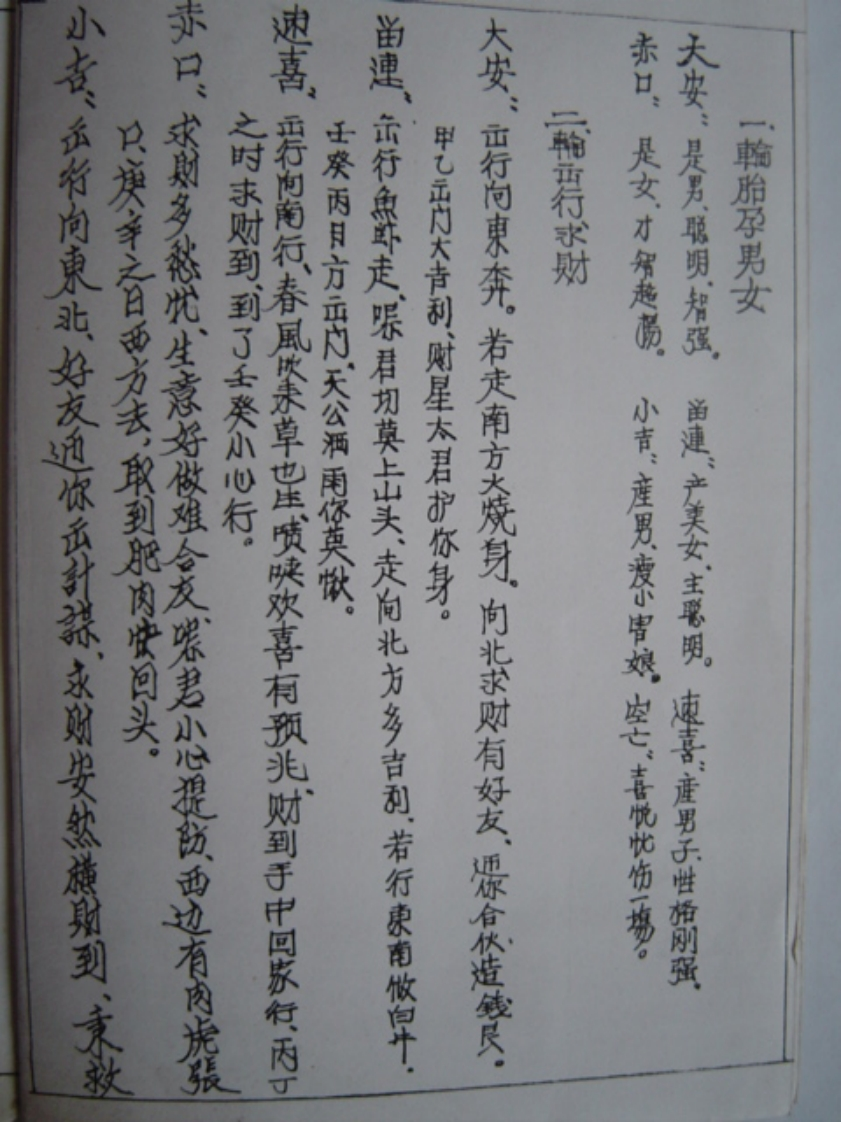 一、輪胎孕男女
大安：是男、聪明、智强。　畄連：产美女、主聪明。　速喜：産男子、性格刚强。
赤口：是女、才智超　。　小吉：産男、瘦小　娘。　空亡：喜悦忧伤一塲。
二、輪出行求財
大安：出行向東奔。若走南方火燒身。向北求财有好友、逥你合伙造錢艮。
甲乙出门大吉利、财星太君护你身。
畄連、出行魚虾走、嘱君切莫上山头、走向北方多吉利、若行東南做白牛．
壬癸丙日方出门、天公洒雨你莫愀。
速喜：出行向南行、春風吹来草也压、喷　欢喜有预兆、财到手中回家行、丙丁
之时求财到、到了壬癸小心行。
赤口：求財多愁忧、生意好做难合友、嘱君小心提防、西边有肉虎張
口、庚辛之日西方去，取到肥肉快回头。
小吉：出行向東北、好友逥你出計謀、求财安然横財到、秉救